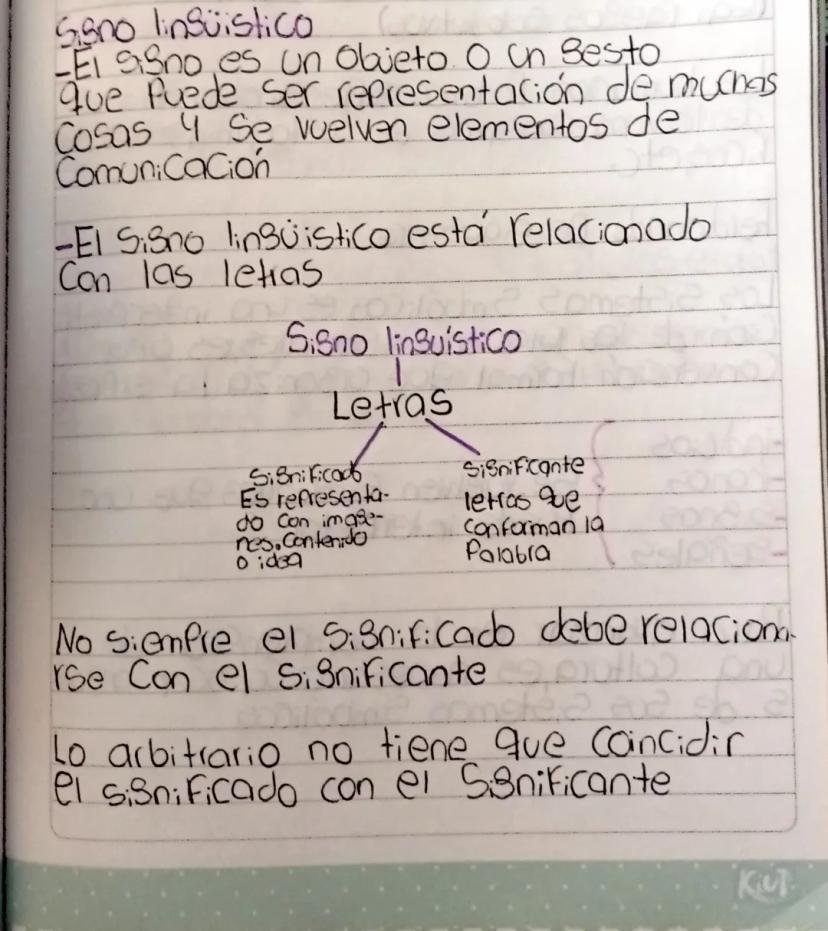 Signo lingüistico
-El signo es un objeto o un gesto
que puede ser representación de muchas
cosas y se vuelven elementos de
Comunicación
-El signo lingüistico está relacionado
Con las letras
Signo linguístico
Letras
Significado
Es representa-
do con imáge-
nes. Contenido
o idea
Significante
letras que
conforman la
Palabra
No siempre el significado debe relaciona-
rse Con el significante
Lo arbitrario no tiene que coincidir
el significado con el Significante
KiUT